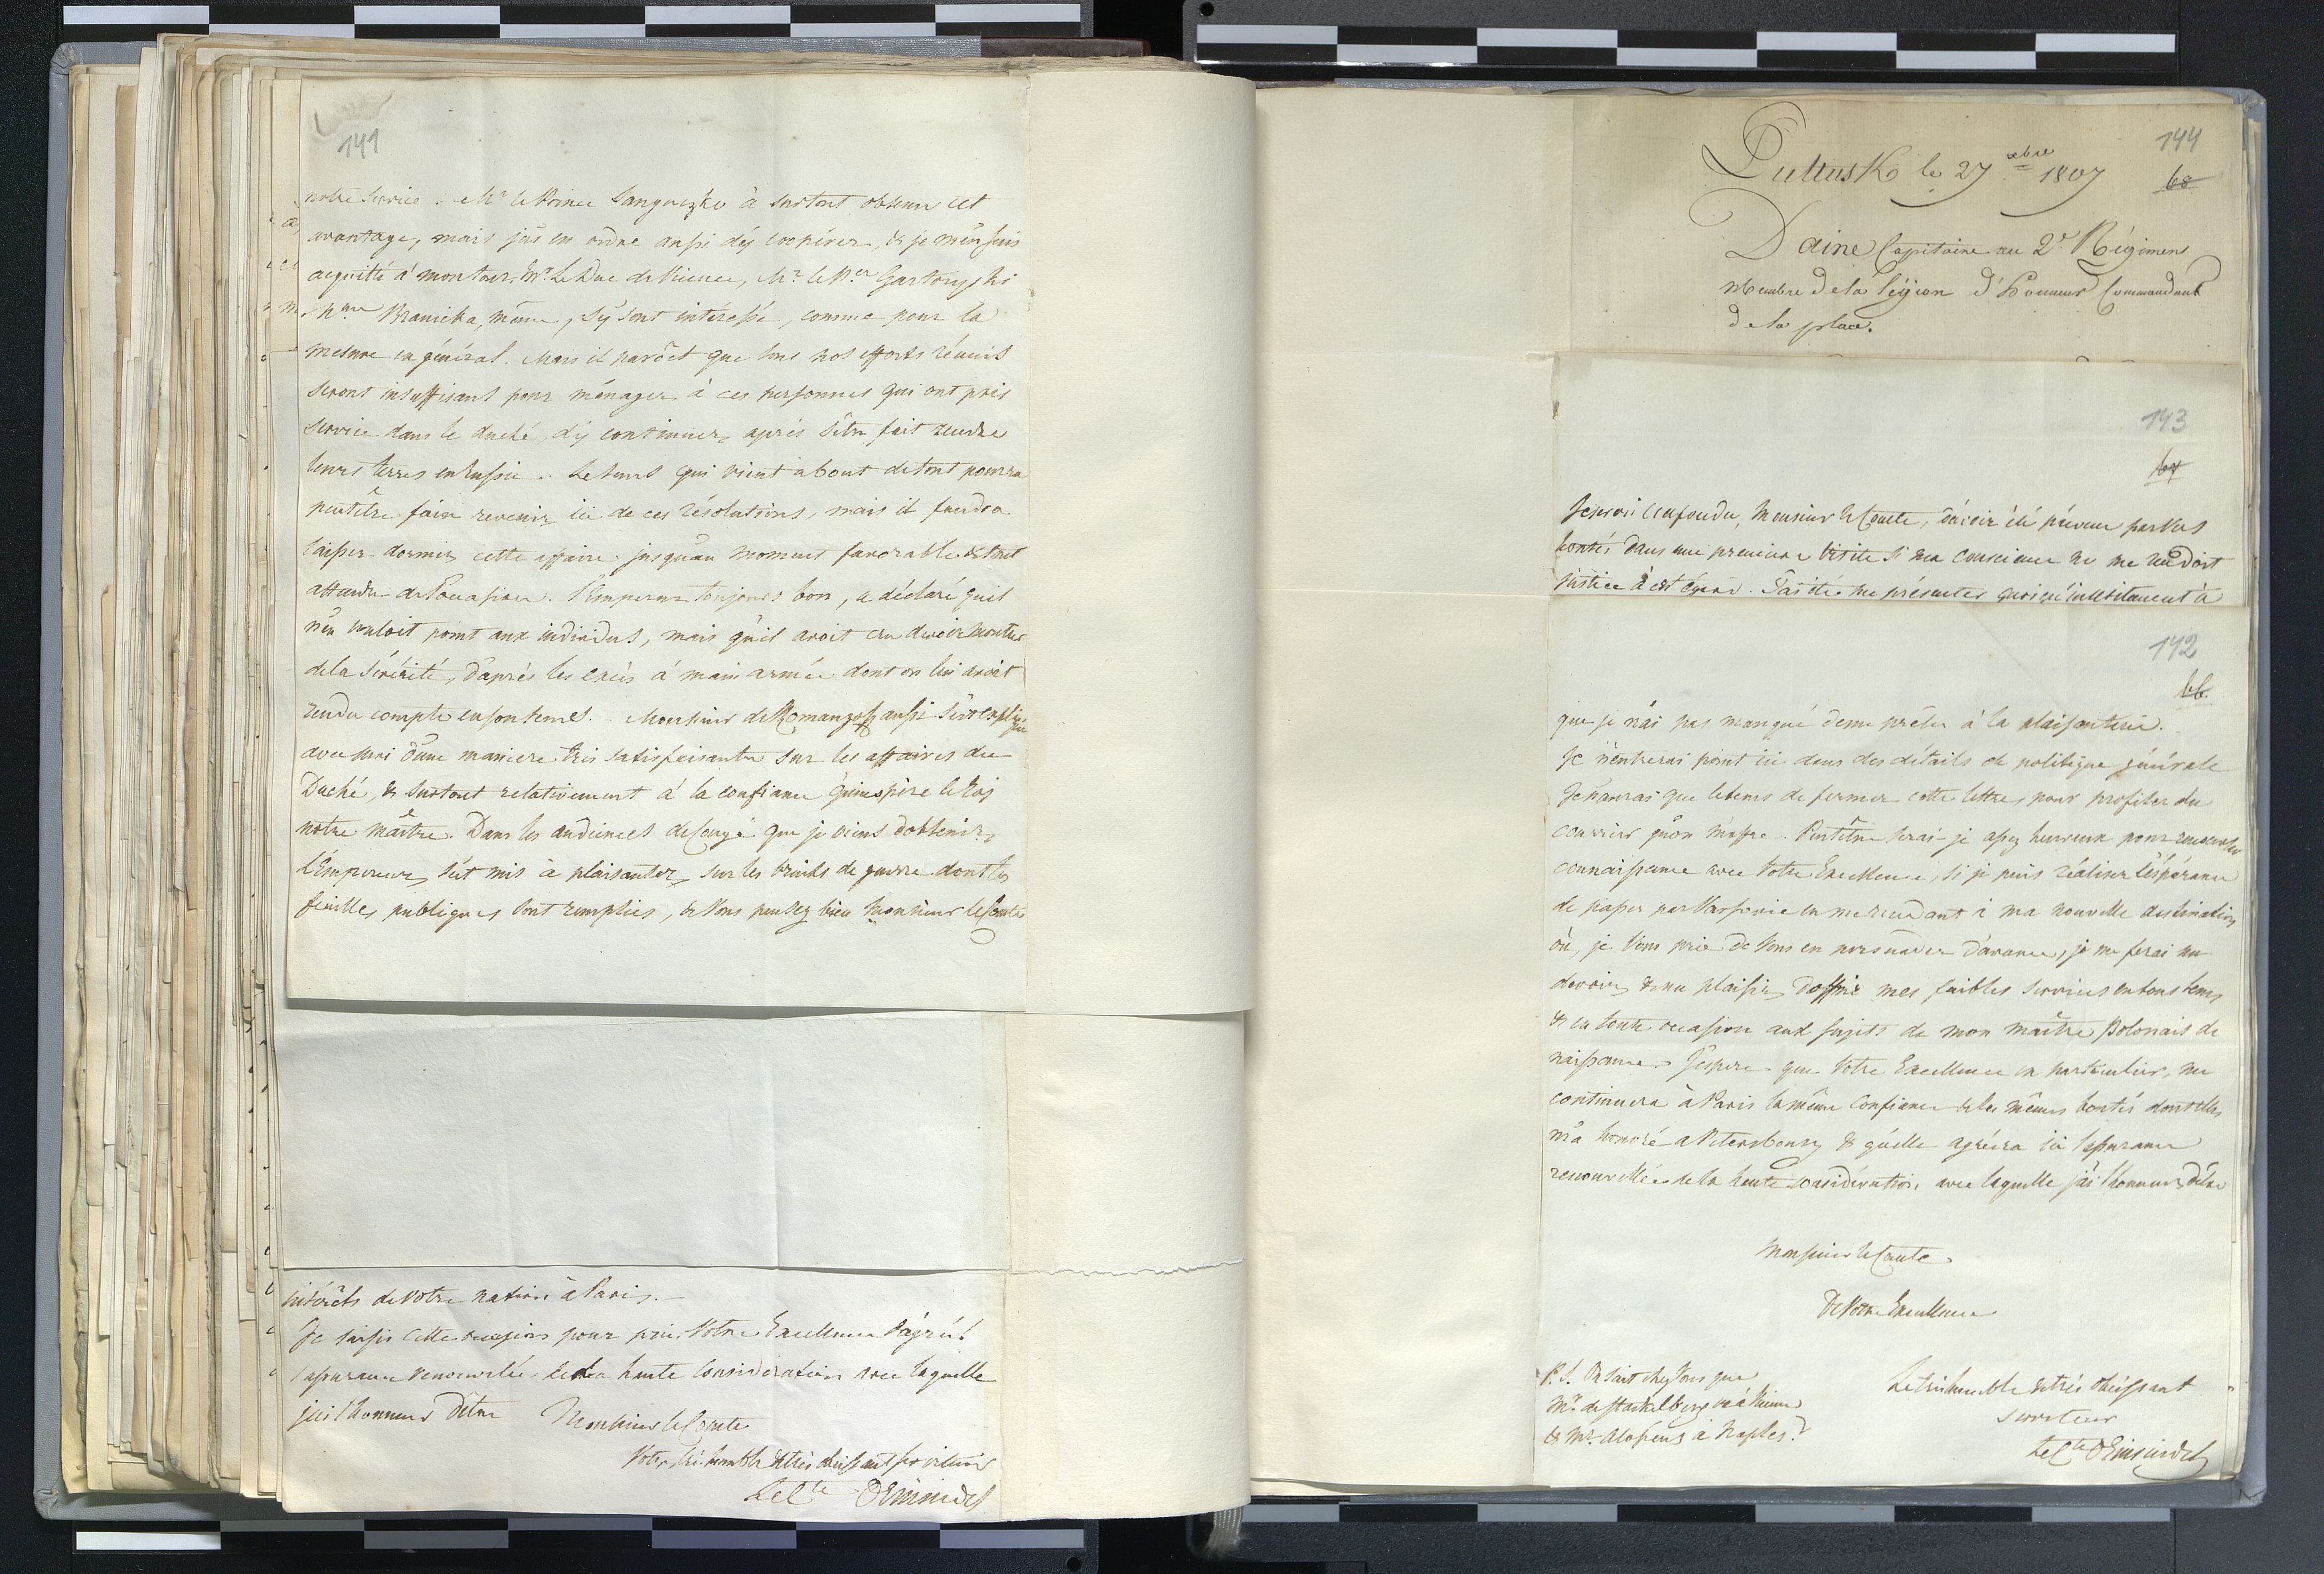 141
notre service. Mr le Prince Sanguszko à surtout obtenu cet
avantage, mais j'ai eu ordre aussi d'y coopérer, & je m'en suis
acquitté à mon tour. Mr Le Duc de Vicence, Mr le Pce
Branicka, même, s'y sont intéressé, comme pour la
mesure en général. Mais il paroît que tous nos efforts réunis
seront insuffisants pour ménager à ces personnes qui ont pris
service dans le duché d'y continuer après s'être fait rendre
leurs terres en Russie. Le tems qui vient about de tout pourra
peutêtre faire revenir ici de ces résolutions, mais il faudra
laisser dormir cette affaire jusqu'au moment favorable & tout
attendre de l'occasion. l'Empereur toujours bon, a déclaré qu'il
n'en vouloit point aux individus, mais qu'il avoit cru devoir montrer
de la sévérité, d'après les excès à main armée dont on lui avoit
rendu compte en son tems. Monsieur de Romanzoff aussi s'est expliqué
avec moi d'une maniere très satisfaisante sur les affaires du
Duché, & surtout relativement à la confiance qu'inspire le Roj
notre maître. Dans les audiences de Congé que je viens d'obtenir,
l'Empereur s'est mis à plaisanter sur les bruits de guerre dont les
feuilles publiques sont remplies, & Vous pensez bien Monsieur le Comte
intérêts de Votre nation à Paris.
Je saisis cette occasion pour prier Votre Excellence d'agréer
l'assurance renouvelée de la haute considération avec laquelle
j'ai l'honneur d'être Monsieur le Comte
Votre très humble & très obéissant serviteur
Le Cte d'Einsiedel
144
68
Pultusk le 27 xbre 1807
Daine Capitaine au 2e Régiment
Membre de la Légion d'Honneur Commandant
de la place.
143
67
Je serois confondu, Monsieur le Comte, d'avoir été prévenu par Vos
bontés dans une premiere visite si ma conscience ne me rendoit
justice à cet égard. J'ai été me présenter quoiqu'inutilement à
142
66.
que je n'ai pas manqué de me prêter à la plaisanterie.
Je n'entrerai point ici dans des détails de politique générale
Je n'aurai que le tems de fermer cette lettre, pour profiter du
courrier qu'on m'offre. Peutêtre serai-je assez heureux pour renouveler
connaissance avec Votre Excellence, si je puis réaliser l'espérance
de passer par Varsovie en me rendant à ma nouvelle destination
où, je Vous prie de Vous en persuader d'avance, je me ferai un
devoir & un plaisir d'offrir mes faibles services en tous tems
& en toute occasion aux sujets de mon maître Polonais de
naissance. J'espere que Votre Excellence en particulier, me
continuera à Paris la même confiance & les mêmes bontés dont elle
m'a honoré à Petersbourg & qu'elle agréera ici l'assurance
renouvellée de la haute considération avec laquelle j'ai l'honneur d'être
Monsieur le Comte
De Votre Excellence
P.S. On sait chez Vous que
Mr de Stackelberg va à Vienne
& Mr. Alopeus à Naples?
Le très humble & très obéissant
serviteur
Le Cte d'Einsiedel